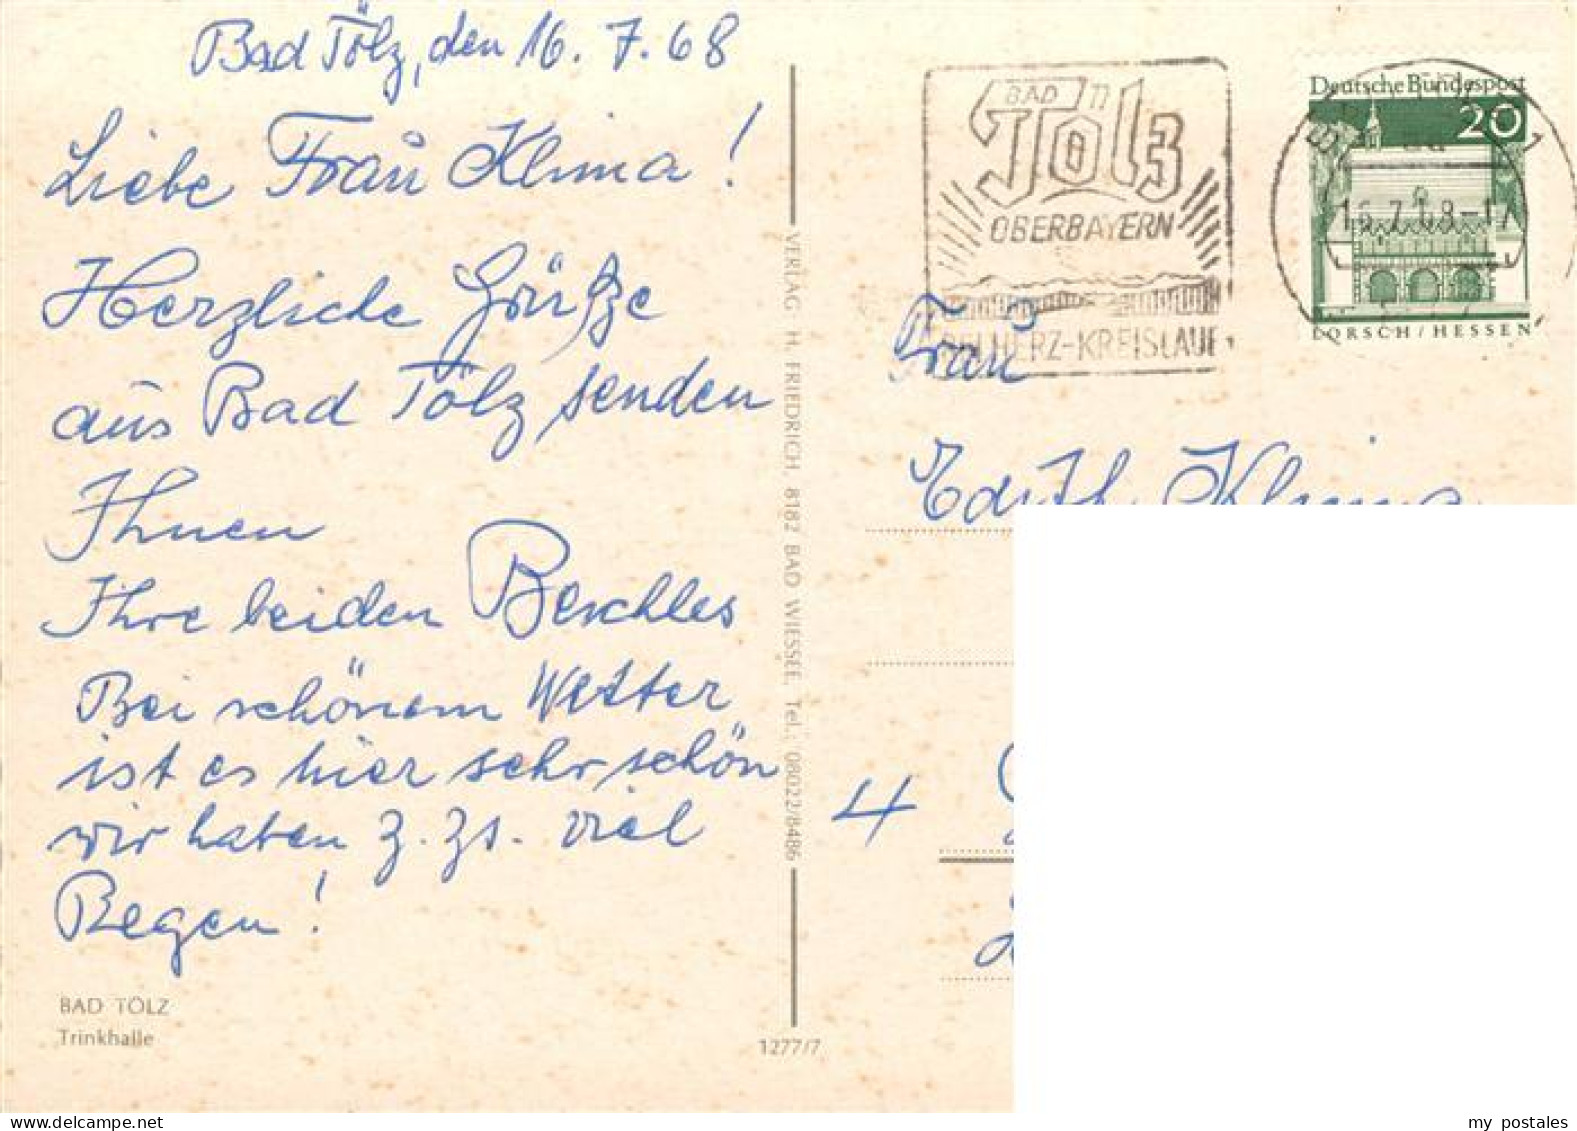 Bad Tölz, den 16. 7. 68
Liebe Frau Klima!
Herzliche Grüße
aus Bad Tölz senden
Ihnen
Ihre beiden
Bei schönem Wetter
ist es hier sehr schön
wir haben z. Zt. viel
Regen!
BAD TÖLZ
Trinkhalle
VERLAG H. FRIEDRICH, 8182 BAD WIESSEE, Tel.: 08022/8486
1277/7
BAD Tölz
OBERBAYERN
HERZ-KREISLAUF
Deutsche Bundespost
20
16.7.68-17
LORSCH/HESSEN
Frau
Edith Klima
4
delcampe.net
my_postales